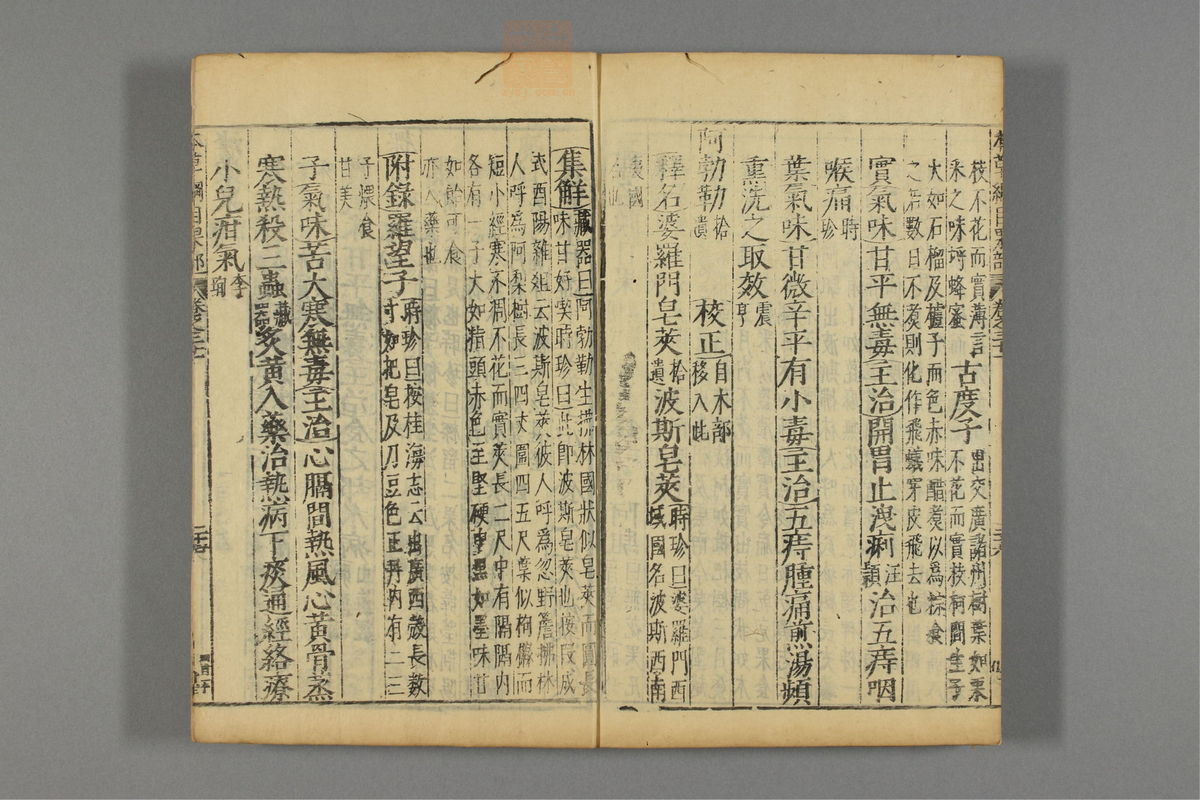 枝不花而實薄言
采之味㺃蜂蜜
古度子
出交廣諸州樹葉如栗
不花而實枝柯間生子
大如石榴及櫨子而色赤味醋煑以爲粽食
之若數日不煑則化作飛蟻穿皮飛去也
實氣味甘平無毒主治開胃止洩痢汪頴治五痔咽
喉痛時珍
葉氣味甘微辛平有小毒主治五痔腫痛煎湯頻
熏洗之取效震亨
阿勃勒拾遺
校正自木部移入此
釋名婆羅門皂莢拾遺波斯皂莢時珍曰婆羅門西
域國名波斯西南
夷國名也
集解藏器曰阿勃勒生拂林國狀似皂莢而圓長
味甘好喫時珍曰此即波斯皂莢也按段成
式酉陽雜組云波斯皂莢彼人呼爲忽野簷拂林
人呼爲阿梨樹長三四丈圍四五尺葉似枸櫞而
短小經寒不凋不花而實莢長二尺中有隔隔内
各有一子大如指頭赤色至堅硬中黑如墨味甘
如飴可食
亦入藥也
附錄羅望子時珍曰按桂海志云出廣西殼長數
寸如肥皂及刀豆色正丹内有二三
子煨食
甘美
子氣味苦大寒無毒主治心膈間熱風心黃骨蒸
寒熱殺三蟲藏器炙黃入藥治熱病下痰通經絡療
小兒疳氣李珣